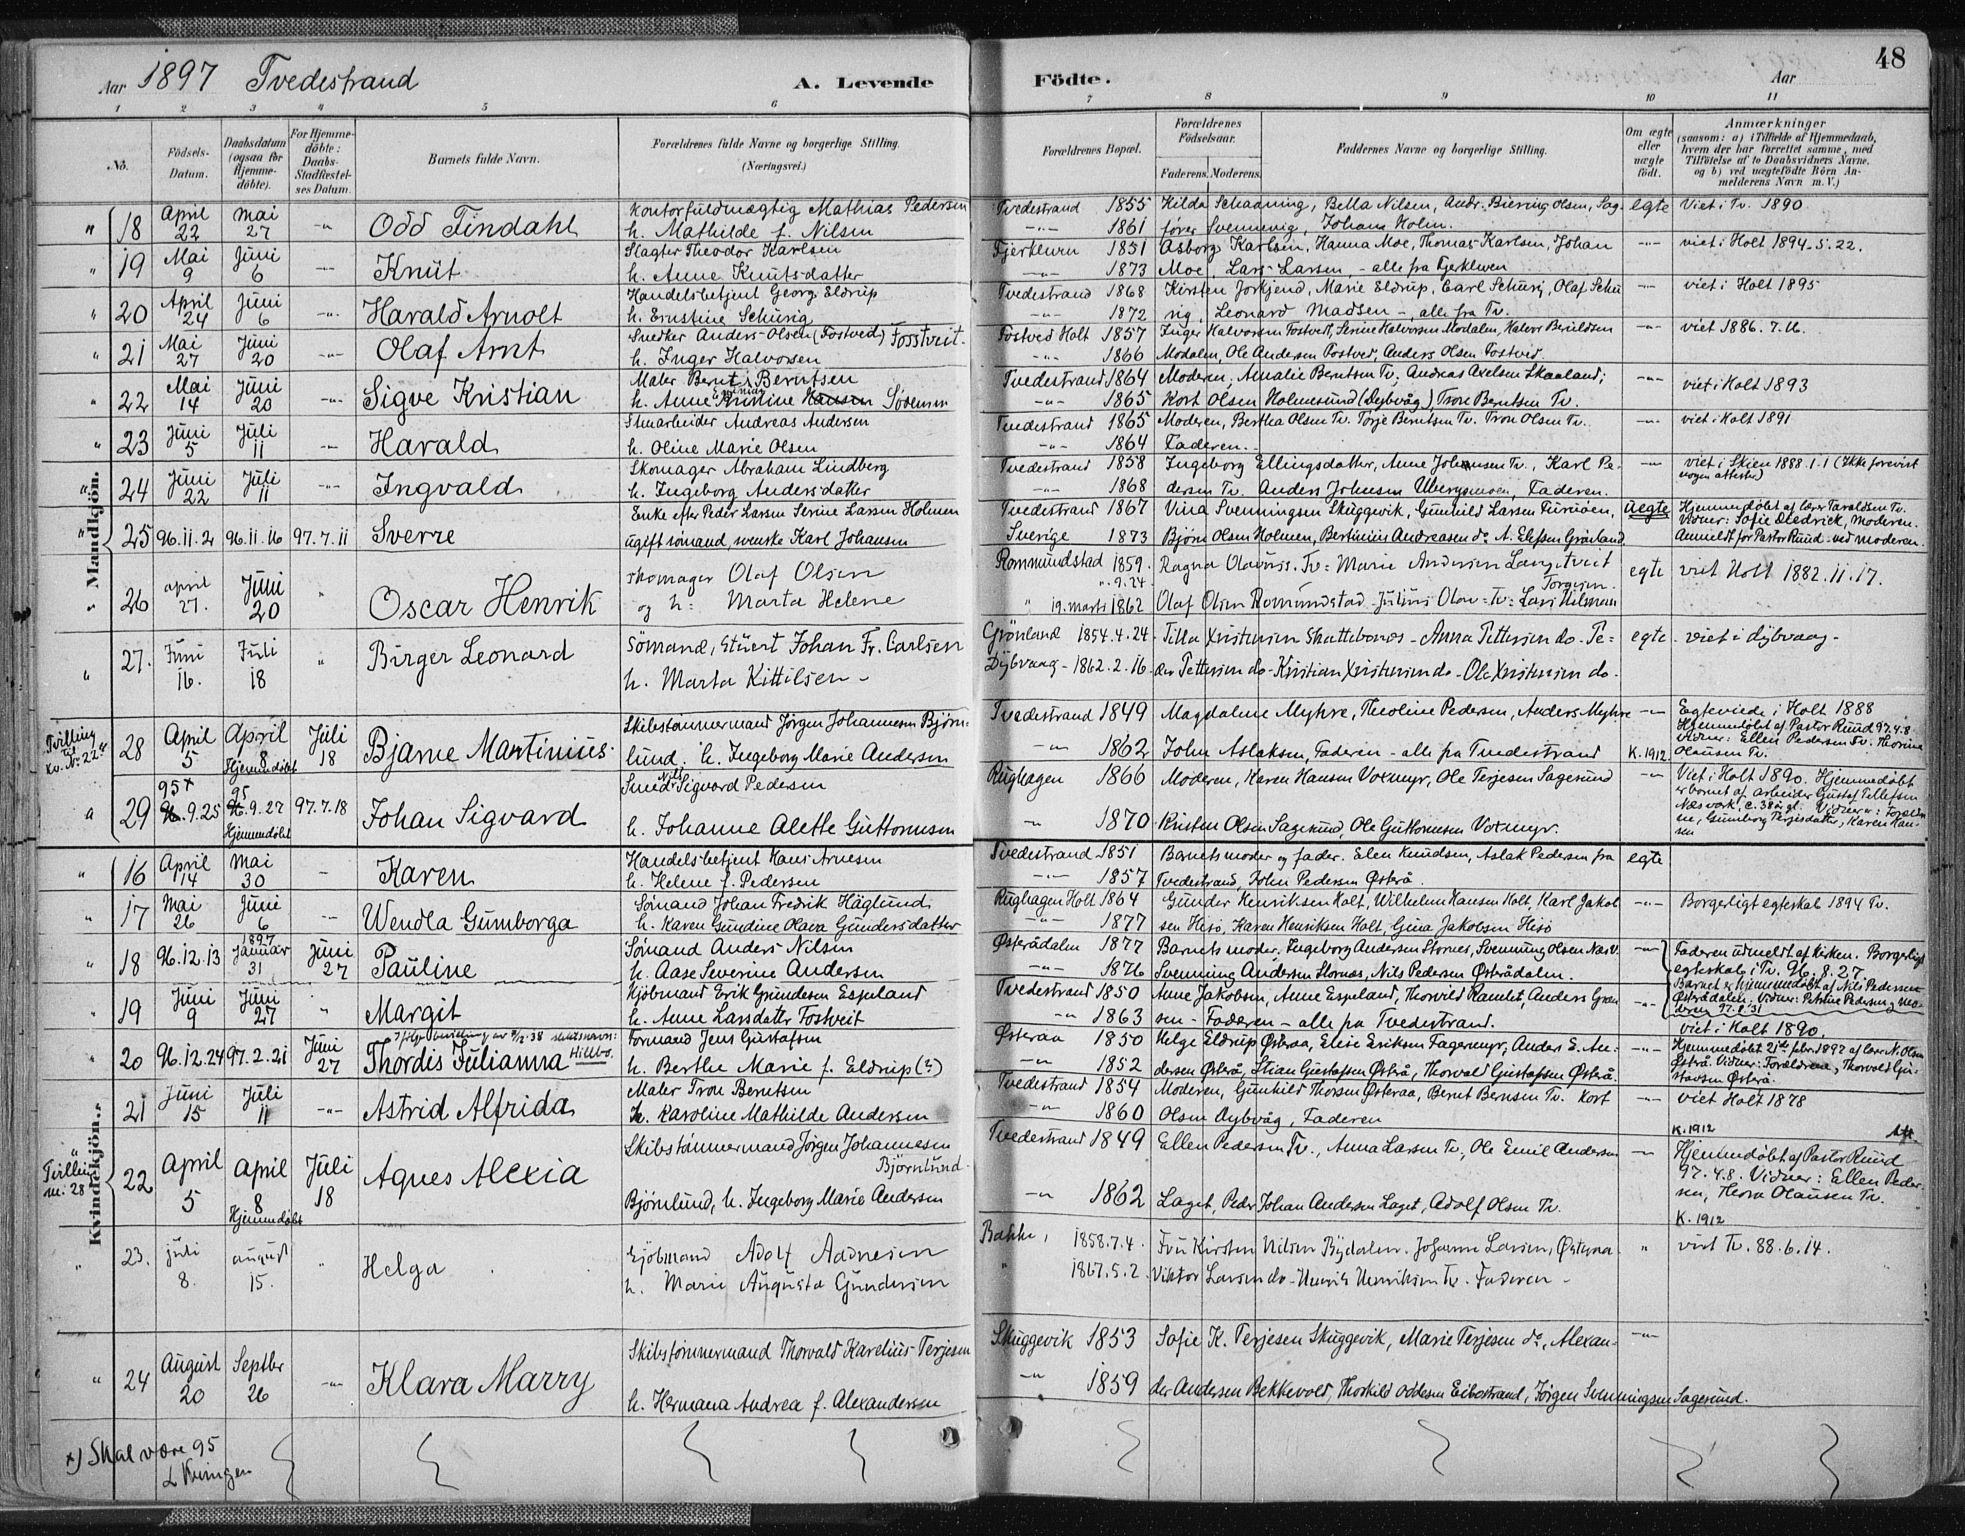 Aar 1897 Tvedestrand A. Levende Födte. Aar 48
1 2 3 4 5 6 7 8 9 10 11
No. Födsels-Datum. Daabsdatum (ogsaa for Hjemme-döbte). For Hjemme-döbte: Daabs-Stadfæstel-ses Datum. Barnets fulde Navn. Forældrenes fulde Navne og borgerlige Stilling. (Næringsvei.) Forældrenes Bopæl. Forældrenes Födselsaar. Faderens. Moderens. Faddernes Navne og borgerlige Stilling. Om ægte eller uægte födt. Anmærkninger (saasom: a) i Tilfælde af Hjemmedaab, hvem der har forrettet samme, med Tilföielse af to Daabsvidners Navne, og b) ved uægtefödte Börn An-melderens Navn m. V.)
Mandkjön.
18 April 22 Mai 27 Odd Findahl Kontorfuldmægtig Mathias Pedersen Tvedestrand 1855 Hilda Schaaning, Bella Nilsen, Andr. Biering Olsen, Sag- egte Viet i Tv. 1890
h. Mathilde f. Nilsen 1861 fører Svennevig, Johana Holm.
19 Mai 9 Juni 6 Knut Slagter Theodor Karlsen Fjerkleven 1851 Asborg Karlsen, Hanna Moe, Thomas Karlsen, Johan viet i Holt 1894-5.22.
h. Anne Knutsdatter 1873 Moe, Lars Larsen, - alle fra Fjerkleven
20 April 24 Juni 6 Harald Arnolt Handelsbetjent Georg Eldrup Tvedestrand 1868 Kirsten Marie Eldrup, Carl Schurig, Olaf Schu viet i Holt 1895
h. Ernstine Schurig 1872 rig, Leonard Madsen -, alle fra Tv.
21 Mai 27 Juni 20 Olaf Arnt Snedker Anders Olsen (Fostved) Fosstveit. Fostved Holt 1857 Inger Halvorsen Fostvedt, Serine Halvorsen Modalen, Halvor viet 1886.7.16.
h. Inger Halvorsen 1866 Modalen, Ole Andersen Fostved, Anders Olsen Fostved.
22 Mai 14 Juni 20 Sigve Kristian Maler Bernt Berntsen Tvedestrand 1864 Moderen, Amalie Berntsen Tv., Andreas Axelsen Skaaland; viet i Holt 1893
h. Anne Hansen 1865 Kort Olsen Holmesund (Dybvåg) Tron Berntsen Tv.
23 Juni 5 Juli 11 Harald Stuarbeider Andreas Andersen Tvedestrand 1865 Moderen, Bertha Olsen Tv. Torje Berntsen Tv. Tron Olsen Tv. viet i Holt 1891
h. Oline Marie Olsen 1864 Faderen.
24 Juni 22 Juli 11 Ingvald Skomager Abraham Lindberg Tvedestrand 1858 Ingeborg Ellingsdatter, Anne Johansen Tv., Karl Pe- viet i Skien 1888.1.1 (Ikke forevist
h. Ingeborg Andersdatter 1868 dersen Tv. Anders Johnsen Ubergsmoen, Faderen. nogen attester)
25 96.11.2 96.11.16 97.7.11 Sverre Enke efter Peder Larsen Serine Larsen Holmen Tvedestrand 1867 Vina Svenningsen Skuggevik, Gunhild Larsen Furuøen, Uegte Hjemmedøbt af lærer Taraldsen Tv.
Vidner: Sofie Diedrick, Moderen.
ugift sømand, svenske Karl Johansen Sverige 1873 Bjørn Olsen Holmen, Bertinius Andreasen do. A. Elefsen Grönland Anmeldt for Pastor Ruud ved moderen.
26 april 27. Juni 20 Oscar Henrik Skomager Olaf Olsen Rommundstad 1859. 9.24 Ragna Tv: Marie Andersen Langetveit egte viet Holt 1882.11.17.
og h: Marta Helene 19. marts 1862 Olaf Olsen Romundstad
27. Juni 16. Juli 18 Birger Leonard Sömand, Stuert Johan Fr. Carlsen Grönland 1854.4.24 Tilla Kristensen Anna Pettersen do. Pe= egte. viet i Dybvaag.
h. Marta Kittilsen - Dybvaag 1862.2.16. der Pettersen do - Kristian Kristensen do - Ole Kristensen do.
Tvilling til Kv. Nr. 22. 28 April 5 April 8 Hjemmedøbt Juli 18 Bjarne Martinius Skibstømmermand Jørgen Johannesen Bjørn- Tvedestrand 1849 Magdalene Myhre, Theoline Pedersen, Anders Myhre Egteviede i Holt 1888
Hjemmedøbt af Pastor Ruud 97.4.8.
Vidner: Ellen Pedersen Tv. Thorine
lund. h. Ingeborg Marie Andersen 1862 John Aslaksen, Faderen - alle fra Tvedestrand K. 1912. Olausen Tv.
29 95+ 96.9.25 95 96.9.27 Hjemmedøbt 97.7.18 Johan Sigvard Smed Nils Sigvard Pedersen Rughagen 1866 Moderen, Karen Hansen Voxmyr, Ole Terjesen Sagesund Viet i Holt 1890. Hjemmedøbt
er barnet af arbeider Gustaf Tellefsen
Næs verk, c. 38 år gl. Vidner: Forældre
h. Johanne Alette Guttormsen 1870 Kristen Olsen Sagesund, Ole Guttormsen Voxmyr. ne, Gunborg Terjesdatter, Karen Han-
sen
Kvindekjön.
16 April 14 Mai 30 Karen Handelsbetjent Hans Arnesen Tvedestrand 1851 Barnets moder og fader. Elen Knudsen, Aslak Pedersen fra egte
h. Helene f. Pedersen 1857 Tvedestrand, John Pedersen Østerå.
17 Mai 26 Juni 6 Wendla Gumborga Sømand Johan Fredrik Häglund Rughagen Holt 1864 Gunder Henriksen Holt, Wilhelm Hansen Holt, Karl Jakob Borgerligt egteskab 1894 Tv.
h. Karen Gundine Olava Gundersdatter 1877 sen Hisö, Karen Henriksen Holt, Gina Jakobsen Hisö
18 96.12.13 1897 Januar 31 Juni 27 Pauline Sømand Anders Nilsen Østerådalen 1877 Barnets moder, Ingeborg Andersen Stornes, Svenning Olsen Næs v. Faderen udmeldt af kirken. Borgerligt
egteskab i Tv. 96.8.27.
h. Aase Severine Andersen 1876 Svenning Andersen Stornæs, Nils Pedersen Østerådalen. Barnet er hjemmedøbt af Nils Pedersen
Østerådalen. Vidner: Petrine Pedersen, mo-
deren 97.1.31
19 Juni 9 Juni 27 Margit Kjøbmand Erik Gundersen Espeland Tvedestrand 1850 Anne Jakobsen, Anne Espeland, Thorvild Ramlet, Anders Gren
h. Anne Larsdatter Fostveit 1863 sen - Faderen - alle fra Tvedestrand. viet i Holt 1890.
20 96.12.24 97.2.21 Juni 27 Thordis Julianna Hillbo. Formand Jens Gustafsen Østeraa 1850 Helge Eldrup Østeraa, Elise Eriksen Fagermyr, Anders E. An- Hjemmedøbt 21de febr. 1897 af lærer N. Olsen
h. Berthe Marie f. Eldrup (?) 1852 dersen Østerå, Stian Gustafsen Østerå, Thorvald Gustafsen Østerå. Østerå. Vidner: Forældrene, Thorvald Gu-
stavsen Østerå.
21 Juni 15 Juli 11 Astrid Alfrida Maler Tron Berntsen Tvedestrand 1854 Moderen, Gunhild Thorsen Østeraa, Bernt Bernsen Tv. Kort viet Holt 1878
h. Karoline Mathilde Andersen 1860 Olsen Dybvåg, Faderen
K. 1912
Tvilling m. 28 22 April 5 April 8 Hjemmedøbt Juli 18 Agnes Alexia Skibstømmermand Jørgen Johannesen Bjørnlund. Tvedestrand 1849 Ellen Pedersen Tv., Anna Larsen Tv., Ole Emil Andersen Hjemmedøbt af Pastor Ruud
97.4.8. Vidner: Ellen Peder-
Bjørnlund, h. Ingeborg Marie Andersen 1862 Laget, Peder Johan Andersen Laget, Adolf Olsen Tv. sen, Thora Olausen Tv.
K. 1912
23. juli 8. august 15. Helga Kjøbmand Adolf Aadnesen Bakke, 1858.7.4. Fru Kirsten Nilsen Bydalen. Johanne Larsen, Østeraa viet Tv. 88.6.14.
h. Marie Augusta Gundersen 1867.5.2. Viktor Larsen do - Henrik Henriksen Tv. Faderen -
24 August 20 Septbr 26 Klara Marry Skibstømmermand Thorvald Karelius Terjesen Skuggevik 1853 Sofie K. Terjesen Skuggevik, Marie Terjesen do, Alexan-
h. Hermana Andrea f. Alexandersen 1859 der Andersen Bekkevold, Thorkild Oddesen Eibostrand, Jørgen Svenningsen Sagesund.
+) Skal være 95